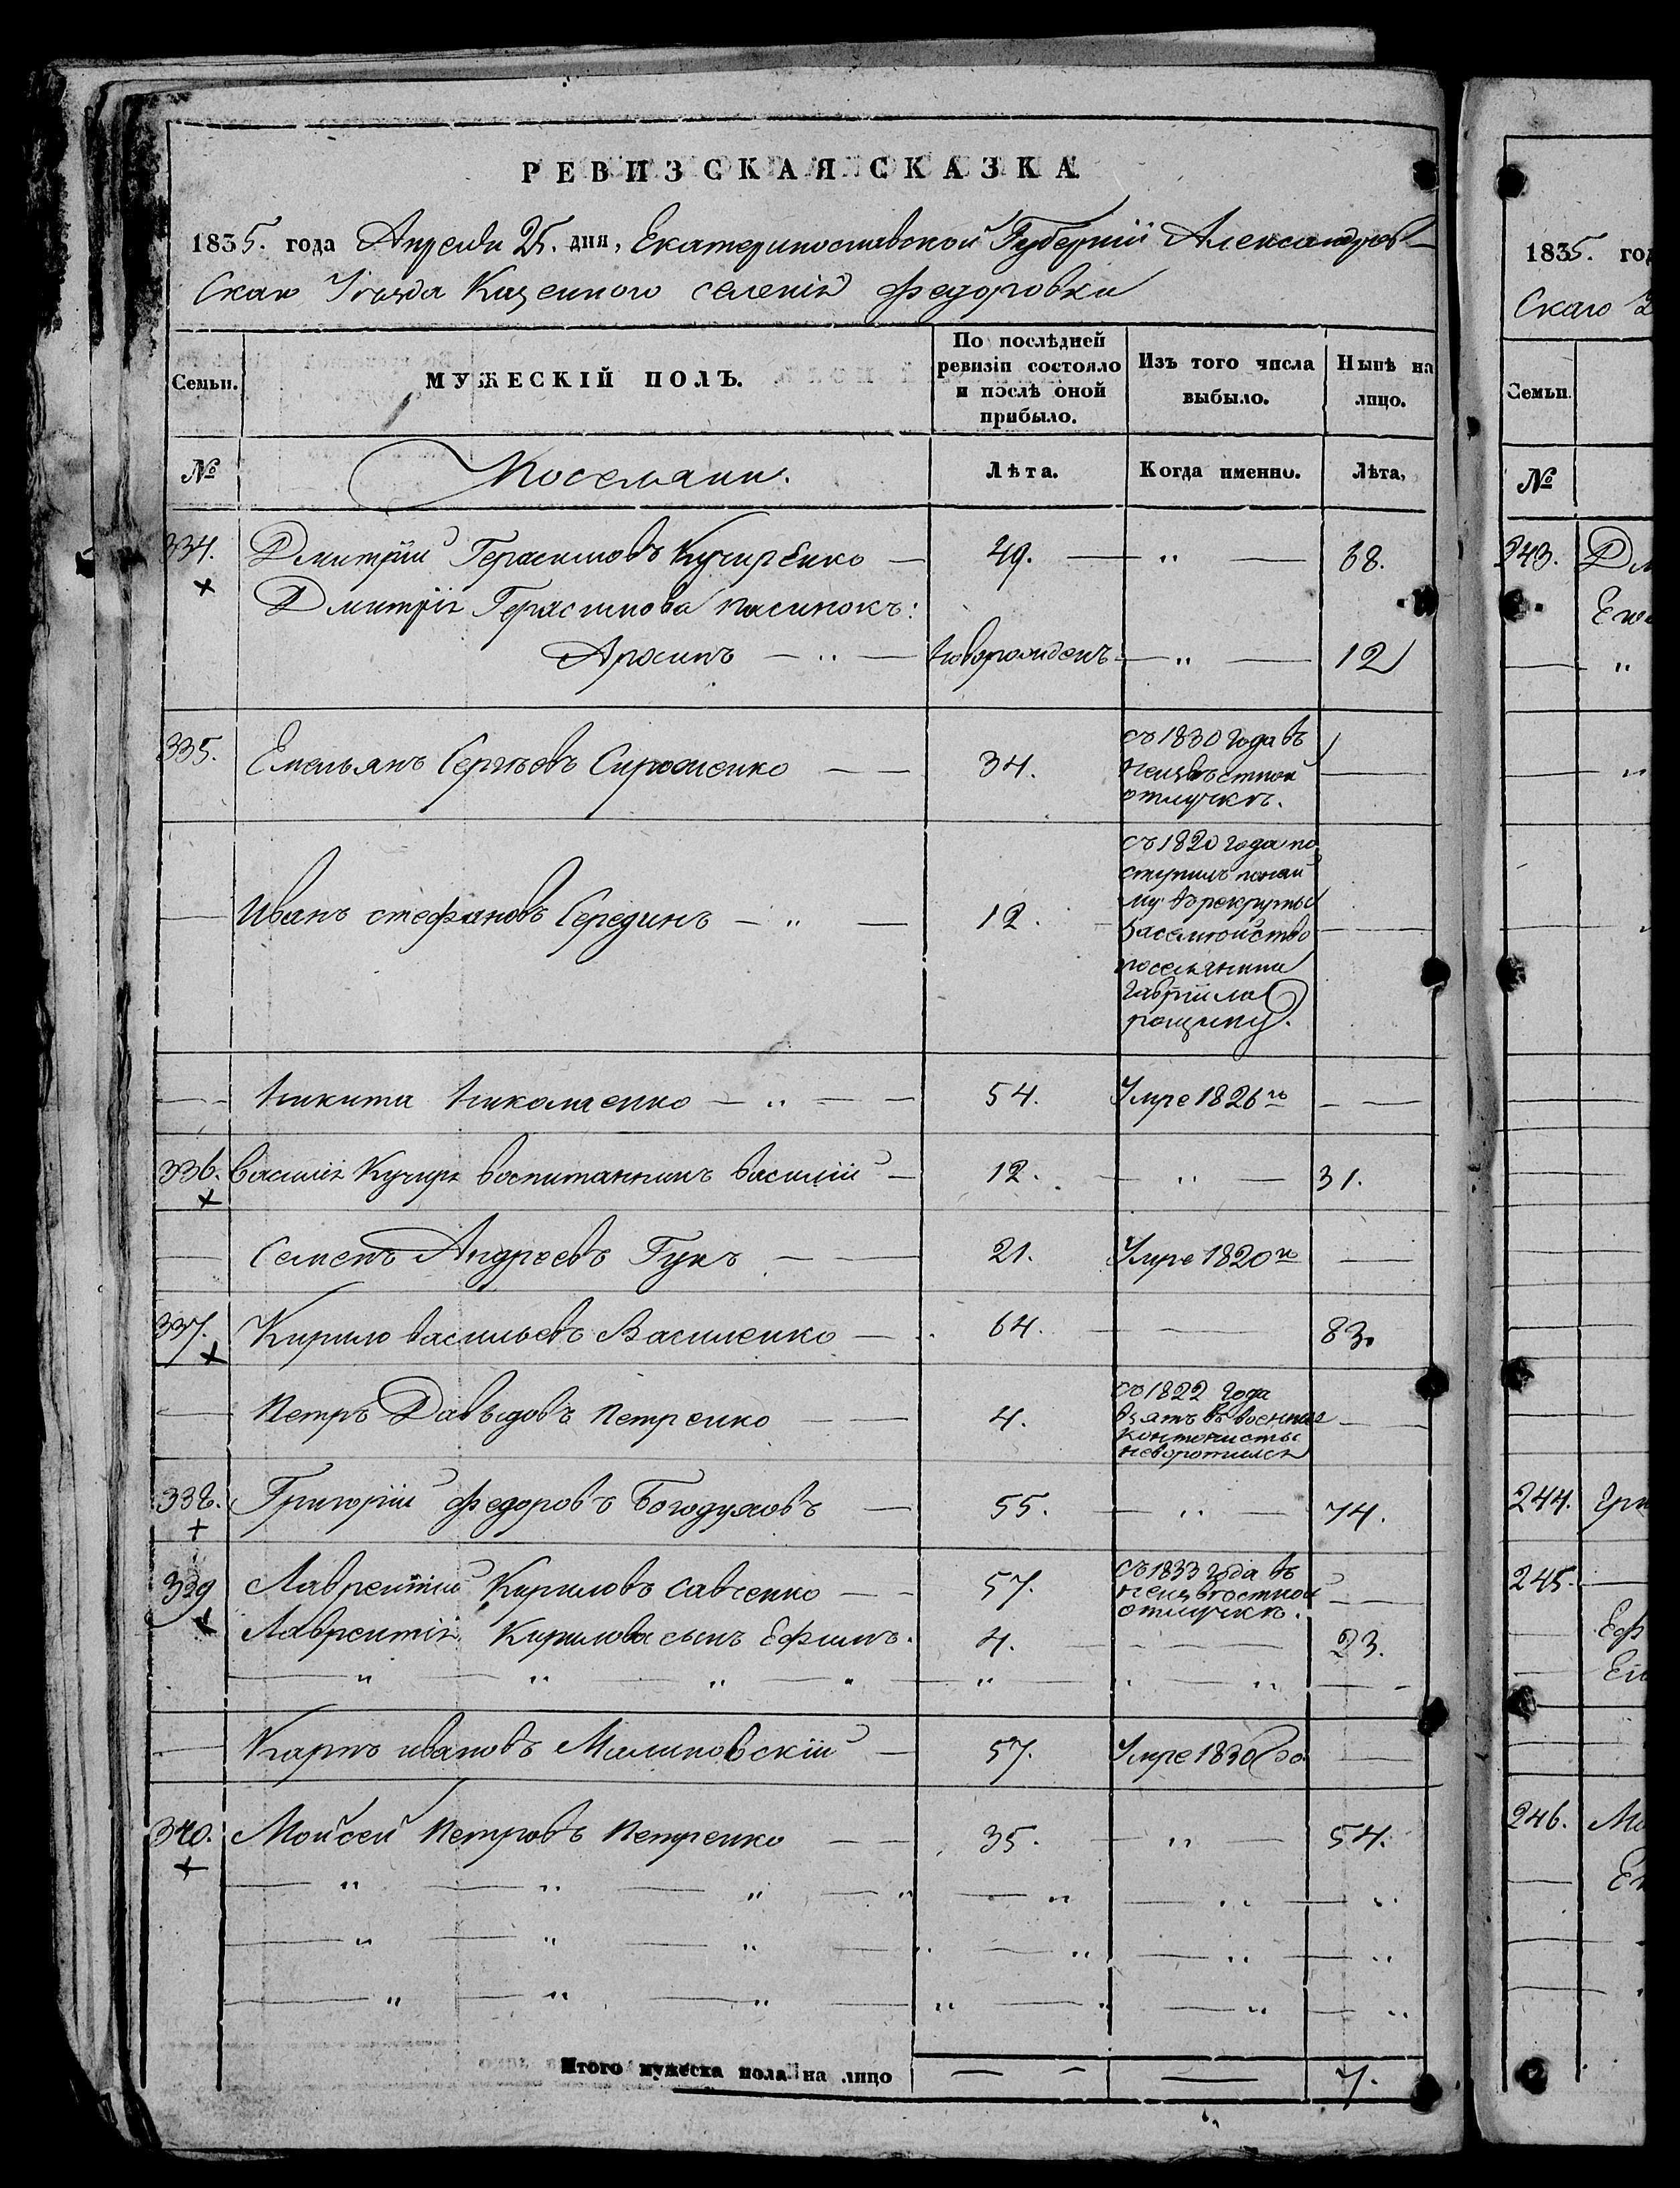 РЕВИЗСКАЯ СКАЗКА
1835. года Апреля 25. дня, Екатеринославской Губернии Александров-
скаго Уезда Казенного селения федоровки
Семьи.
МУЖЕСКІЙ ПОЛЪ.
По послѣдней ревизіи состояло и послѣ оной прибыло.
Изъ того числа выбыло.
Нынѣ на лицо.
№
Поселяни.
Лѣта.
Когда именно.
Лѣта,
334. Дмитрий Герасимовъ Кучиренко — 49. — " — 68.
Дмитрія Герасимова пасинокъ:
— " — новорожденъ — " — 12
335. Емельянъ Сергѣевъ — — 34. съ 1830 года въ
неизвѣстной
отлучкѣ.
— Иванъ стефановъ Серединъ — " — 12. съ 1820 года по
ступилъ понай
му врекруты
засемейство
поселянина
гаврила
— Никита Николаенко — " — — 54. Умре 1826го — —
336. Василія Кучира воспитанникъ василій — 12. — " — 31.
— Семенъ Андреевъ Гукъ — — 21. Умре 1820го —
337. Кирило васильевъ Василенко — 64. — 83.
— Петръ Давыдовъ Петренко — — 4. съ 1822 года
взятъ въ военния
контонисты
неворотился
338. Григорій федоровъ Богодуховъ — 55. — " — 74.
339 Лаврентій Кириловъ савченко — — 57. съ 1833 года въ
неизвѣстной
отлучкѣ.
Лаврентія Кирилова сынъ Ефимъ. 4. — 23.
— Карпъ ивановъ Малиновскій — 57. Умре 1830 го —
340. Мойсей Петровъ Петренко — — 35. — " — 54.
Итого мужеска пола на лицо — — 7.
1835. год
Скаго
Семьи.
№
243.
"
"
244.
245.
Еф
246.